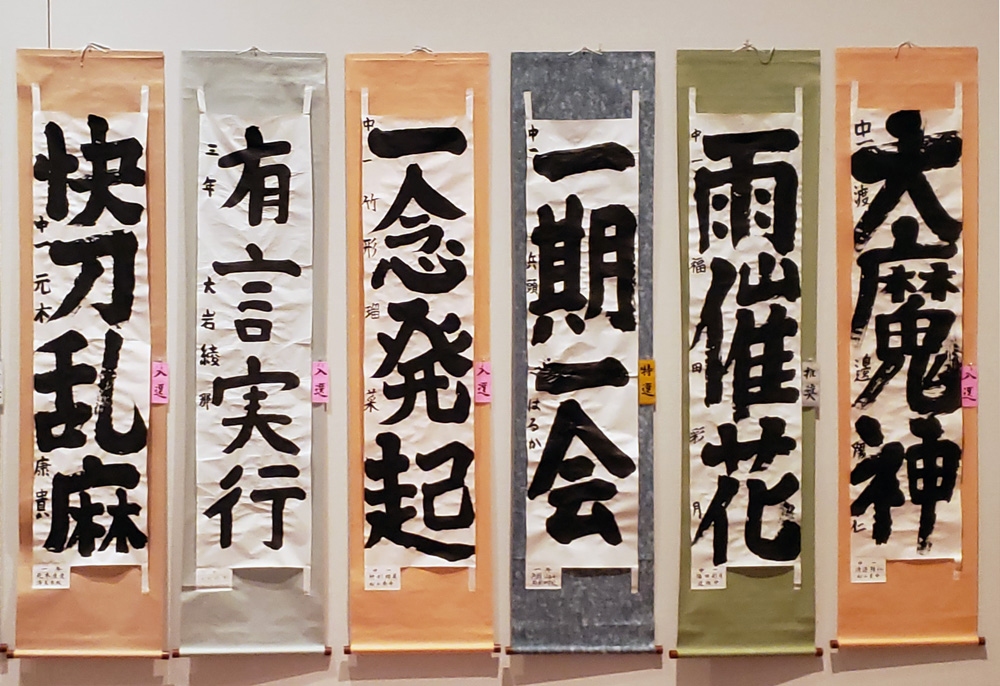 大魔神
中一 渡邉 陽仁
入選
雨催花
中一 福田 彩月
推奨
一期一会
中一 兵頭 はるか
特選
一念発起
中一 竹形 瑠菜
入選
有言実行
三年 大岩 綾那
入選
快刀乱麻
中一 元木 康貴
入選